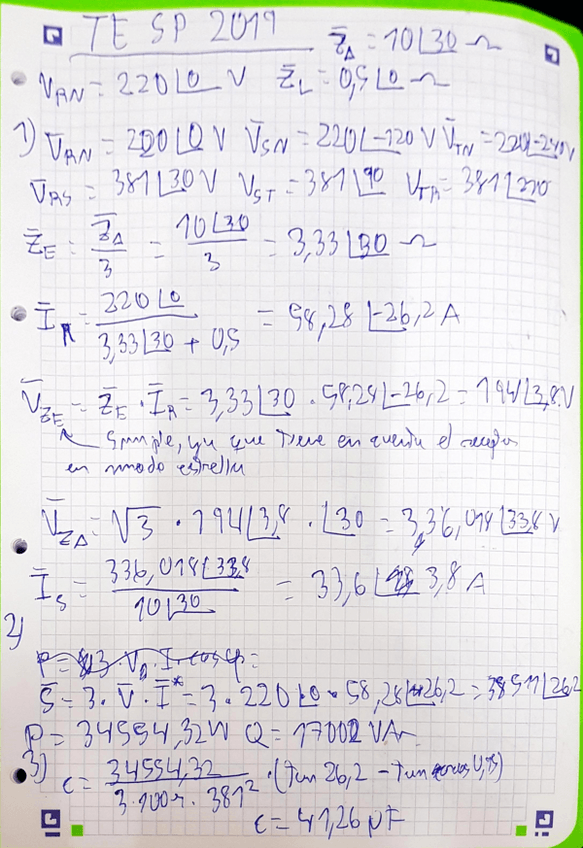 TE SP 2019 Z̄Δ = 10∠30 Ω
V̄RN = 220∠0 V Z̄L = 0,5∠0 Ω
1) V̄RN = 220∠0 V V̄SN = 220∠-120 V V̄TN = 220∠-240 V
V̄RS = 381∠30 V V̄ST = 381∠90 V̄TR = 381∠270
Z̄E = Z̄Δ/3 = 10∠30/3 = 3,33∠30 Ω
ĪR = 220∠0/(3,33∠30 + 0,5) = 58,28∠-26,2 A
V̄ZE = Z̄E · ĪR = 3,33∠30 · 58,28∠-26,2 = 194∠3,8 V
Simple, ya que tiene en cuenta el
en modo estrella
V̄ZΔ = √3 · 194∠3,8 · ∠30 = 336,018∠33,8 V
ĪS = 336,018∠33,8/10∠30 = 33,6∠3,8 A
2)
S̄ = 3 · V̄ · Ī* = 3 · 220∠0 · 58,28∠26,2 = 38511∠26,2
P = 34554,32W Q = 17002 VAr
3) c = 34554,32/(3·100π·381²) · (tan 26,2 - tan
c = 41,26 µF